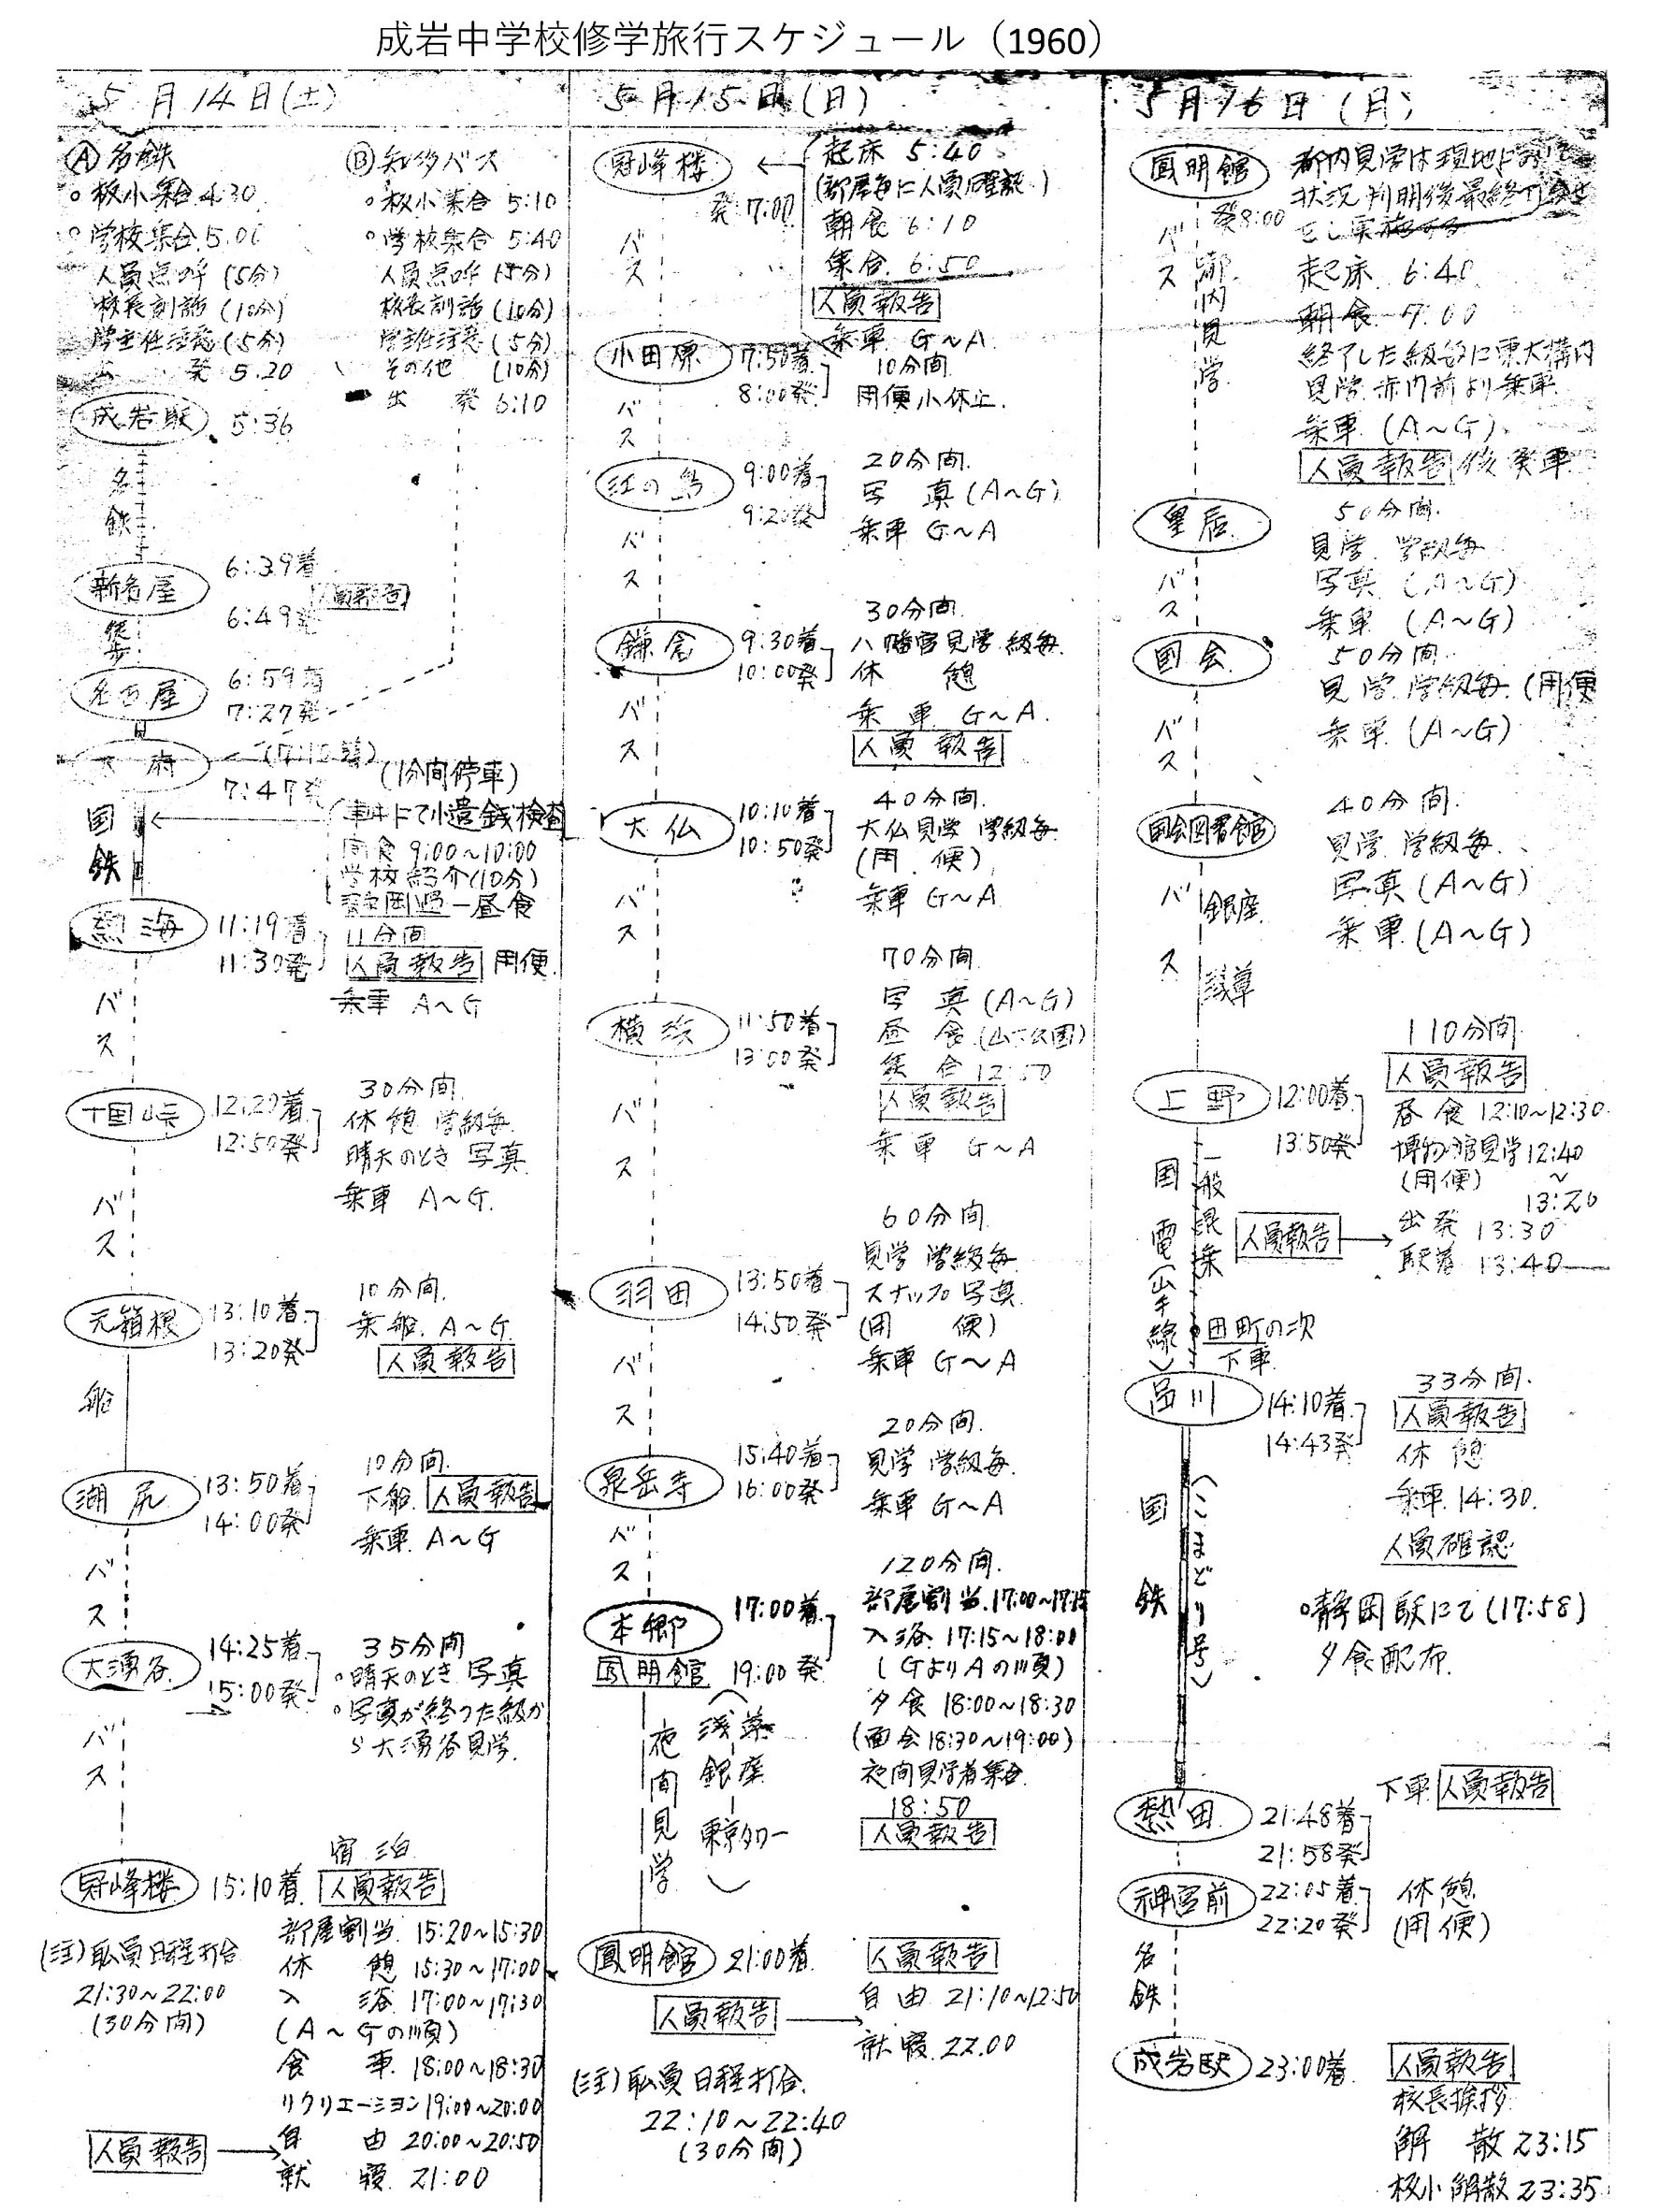 成岩中学校修学旅行スケジュール（1960）
5月14日(土)
Ⓐ名鉄
○板小集合 4:30
○学校集合 5:00
人員点呼 (5分)
校長訓話 (10分)
学主任注意 (5分)
出 発 5.20
成岩駅 5:36
名鉄
新名古屋
6:39着
6:49発
人員報告
徒歩
名古屋
6:59着
7:27発
Ⓑ知多バス
○板小集合 5:10
○学校集合 5:40
人員点呼 (5分)
校長訓話 (10分)
学主任注意 (5分)
その他 (10分)
出 発 6:10
大府
7:47発
(1分間停車)
国鉄
車中にて小遣銭検査
間食 9:00~10:00
学校紹介(10分)
静岡過一昼食
熱海
11:19着
11:30発
11分間
人員報告 用便
乗車 A~G
バス
十国峠
12:20着
12:50発
30分間
休憩 学級毎
晴天のとき 写真
乗車 A~G.
バス
元箱根
13:10着
13:20発
10分間.
乗船. A~G
人員報告
船
湖尻
13:50着
14:00発
10分間.
下船. 人員報告
乗車 A~G
バス
大湧谷
14:25着
15:00発
35分間
○晴天のとき 写真
○写真が終った級か
ら大湧谷見学.
バス
冠峰楼 15:10着
宿泊
人員報告
部屋割当 15:20~15:30
休 憩 15:30~17:00
入 浴 17:00~17:30
(A~Gの順)
食 事 18:00~18:30
リクリエーション 19:00~20:00
自 由 20:00~20:50
人員報告
就 寝 21:00
(注)職員日程打合
21:30~22:00
(30分間)
5月15日(日)
冠峰楼
発7:00
起床 5:40
(部屋毎に人員確認)
朝食 6:10
集合 6:50
人員報告
乗車 G~A
バス
小田原
7:50着
8:00発
10分間
用便小休止.
バス
江の島
9:00着
9:20発
20分間.
写 真 (A~G)
乗車 G~A
バス
鎌倉
9:30着
10:00発
30分間.
八幡宮見学 級毎
休 憩
乗車 G~A.
人員報告
バス
大仏
10:10着
10:50発
40分間.
大仏見学 学級毎
(用 便)
乗車 G~A
バス
横浜
11:50着
13:00発
70分間
写 真 (A~G)
昼 食 (山下公園)
集 合 12:50
人員報告
乗車 G~A
バス
羽田
13:50着
14:50発
60分間.
見学 学級毎
スナップ写真
(用 便)
乗車 G~A
バス
泉岳寺
15:40着
16:00発
20分間.
見学 学級毎.
乗車 G~A
バス
本郷
鳳明館
17:00着
19:00発
120分間.
部屋割当 17:00~17:15
入浴 17:15~18:00
(GよりAの順)
夕食 18:00~18:30
(面会 18:30~19:00)
夜間見学者集合
18:50
人員報告
夜間見学
(浅草
銀座
東京タワー)
鳳明館 21:00着
人員報告
自由 21:10~12:50
人員報告
就寝 22.00
(注)職員日程打合.
22:10~22:40
(30分間)
5月16日(月)
鳳明館
発8:00
都内見学は現地よの
状況判明後最終決定
をし実施する
起床 6:40
朝食 7:00
終了した級毎に東大構内
見学 赤門前より乗車
乗車 (A~G)
人員報告 後発車
バス
都内見学
皇居
50分間.
見学 学級毎
写真 (A~G)
乗車 (A~G)
バス
国会
50分間
見学 学級毎 (用便
乗車 (A~G)
バス
国会図書館
40分間.
見学 学級毎
写真 (A~G)
乗車 (A~G)
バス
銀座
浅草
上野
12:00着
13:50発
110分間
人員報告
昼食 12:10~12:30
博物館見学 12:40
~
13:20
(用便)
人員報告
出発 13:30
駅着 13:40
国電(山手線)
一般混乗
田町の次
下車
品川
14:10着
14:43発
33分間.
人員報告
休憩
乗車 14:30.
人員確認
国鉄
(こまどり号)
○静岡駅にて(17:58)
夕食配布.
熱田
21:48着
21:58発
下車 人員報告
神宮前
22:05着
22:20発
休憩
(用便)
名鉄
成岩駅 23:00着
人員報告
校長挨拶
解 散 23:15
板小解散 23:35